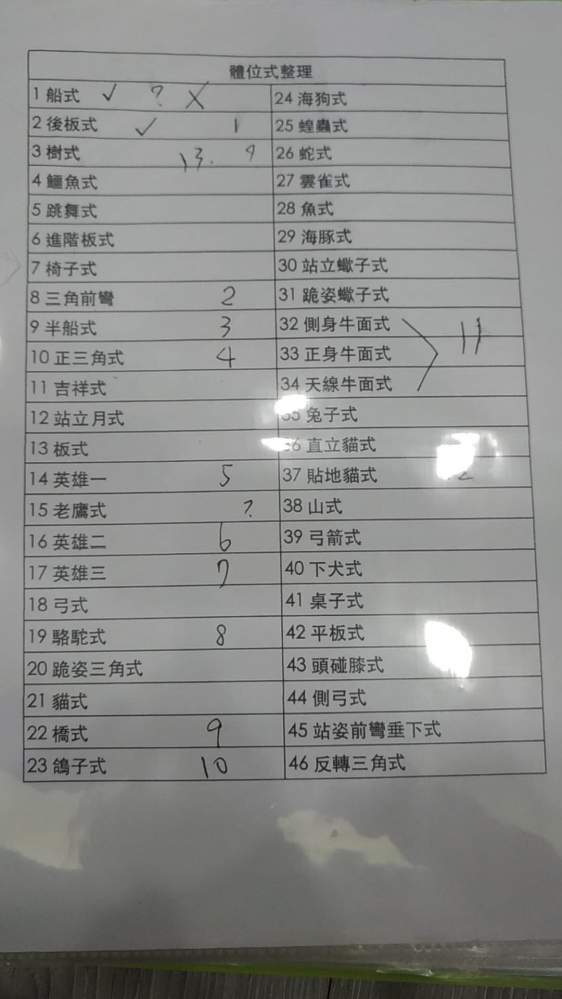 體位式整理
1 船式 ✓ ? X
2 後板式 ✓ 1
3 樹式 13. 9
4 鱷魚式
5 跳舞式
6 進階板式
7 椅子式
8 三角前彎 2
9 半船式 3
10 正三角式 4
11 吉祥式
12 站立月式
13 板式
14 英雄一 5
15 老鷹式 ?
16 英雄二 6
17 英雄三 7
18 弓式
19 駱駝式 8
20 跪姿三角式
21 貓式
22 橋式 9
23 鴿子式 10
24 海狗式
25 蝗蟲式
26 蛇式
27 雲雀式
28 魚式
29 海豚式
30 站立蠍子式
31 跪姿蠍子式
32 側身牛面式
33 正身牛面式 11
34 天線牛面式
35 兔子式
36 直立貓式
37 貼地貓式
38 山式
39 弓箭式
40 下犬式
41 桌子式
42 平板式
43 頭碰膝式
44 側弓式
45 站姿前彎垂下式
46 反轉三角式